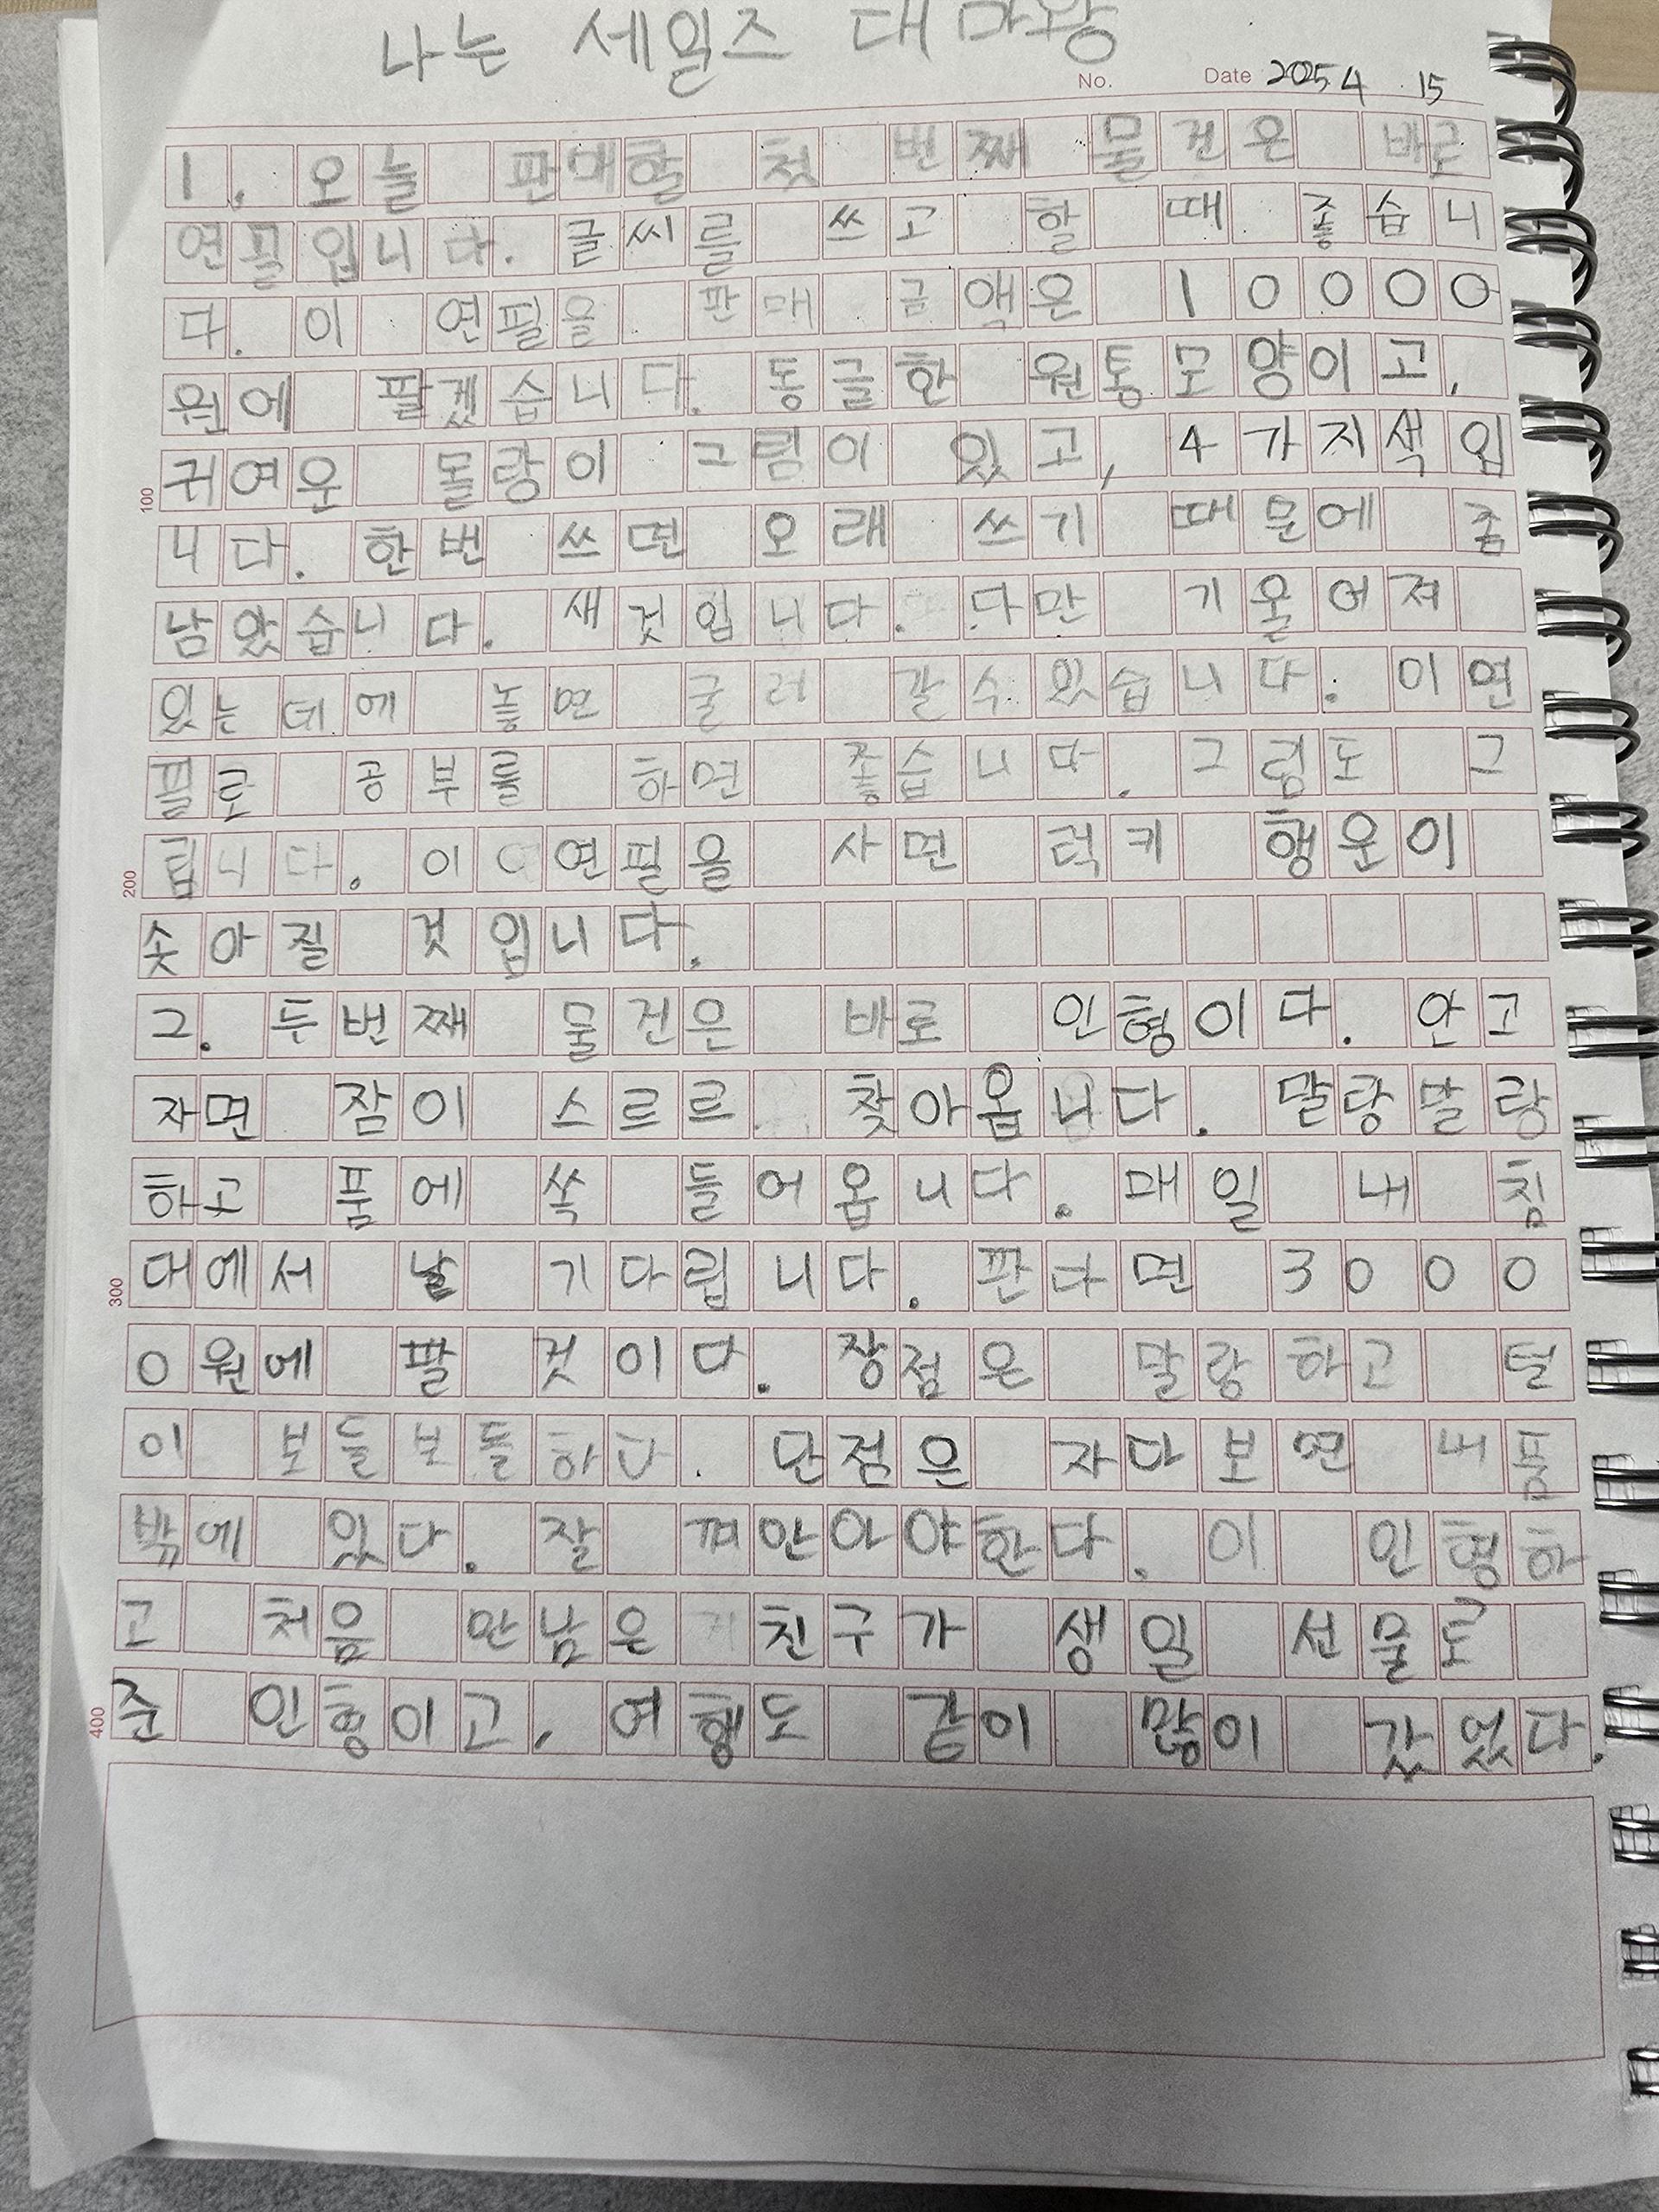 나는 세일즈 대마왕
No. Date 2025 4 15
1. 오늘 판매할 첫 번째 물건은 바로
연필입니다. 글씨를 쓰고 할 때 좋습니
다. 이 연필을 판매 금액은 10000
원에 팔겠습니다. 동글한 원통모양이고,
귀여운 몰랑이 그림이 있고, 4가지색입
100
니다. 한번 쓰면 오래 쓰기 때문에 좀
남았습니다. 새것입니다. 다만 기울어져
있는데에 놓면 굴러 갈수있습니다. 이연
필로 공부를 하면 좋습니다. 그림도 그
립니다. 이 연필을 사면 럭키 행운이
200
솟아질 것입니다.
2. 두번째 물건은 바로 인형이다. 안고
자면 잠이 스르르 찾아옵니다. 말랑말랑
하고 품에 쏙 들어옵니다. 매일 내 침
대에서 날 기다립니다. 판다면 3000
300
0원에 팔 것이다. 장점은 말랑하고 털
이 보들보들하다. 단점은 자다보면 내품
밖에 있다. 잘 껴안아야한다. 이 인형하
고 처음 만남은 친구가 생일 선물로
준 인형이고, 여행도 같이 많이 갔었다.
400